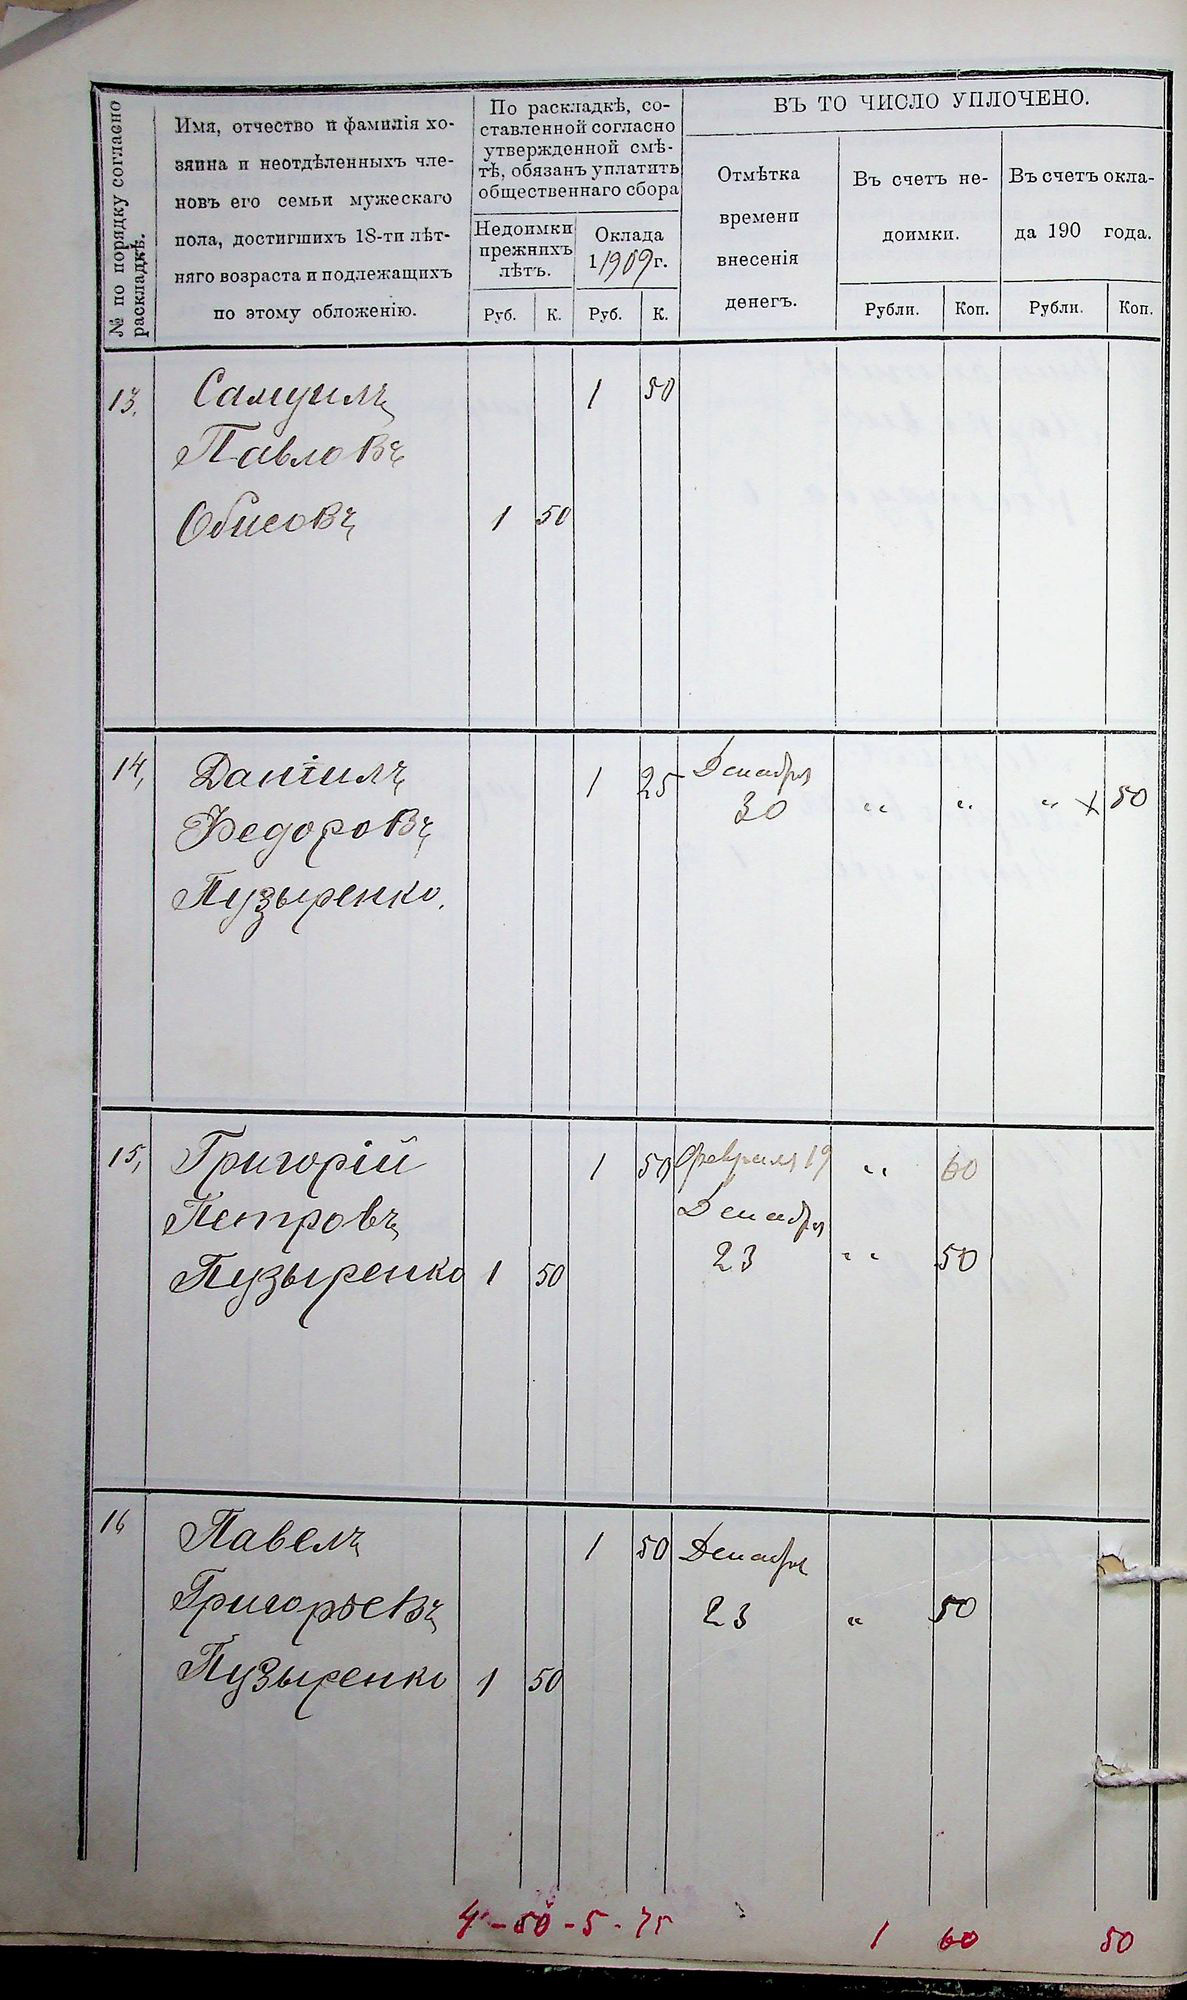 № по порядку согласно
раскладкѣ.
Имя, отчество и фамилія хо-
зяина и неотдѣленныхъ чле-
новъ его семьи мужескаго
пола, достигшихъ 18-ти лѣт-
няго возраста и подлежащихъ
по этому обложенію.
По раскладкѣ, со-
ставленной согласно
утвержденной смѣ-
тѣ, обязанъ уплатить
общественнаго сбора
Недоимки
прежнихъ
лѣтъ.
Руб. К.
Оклада
1909 г.
Руб. К.
ВЪ ТО ЧИСЛО УПЛОЧЕНО.
Отмѣтка
времени
внесенія
денегъ.
Въ счетъ не-
доимки.
Рубли. Коп.
Въ счетъ окла-
да 190 года.
Рубли. Коп.
13. Самуилъ 1 50
Павловъ
Обисовъ 1 50
14, Даніилъ 1 25 Декабря
30 " " " х 50
Федоровъ
Пузыренко.
15, Григорій 1 50 Февраля 19 " 60
Петровъ Декабря
Пузыренко 1 50 23 " 50
16 Павелъ 1 50 Декабря
Григорьевъ 23 " 50
Пузыренко 1 50
4 - 50 - 5 - 75 1 60 50